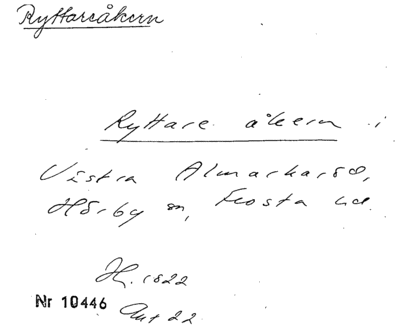 Ryttareåkern
Ryttare åkern i
Västra Almarkaröd,
Hörby sn, Frosta hd.
H. 1822
Nr 10446
Ant 22